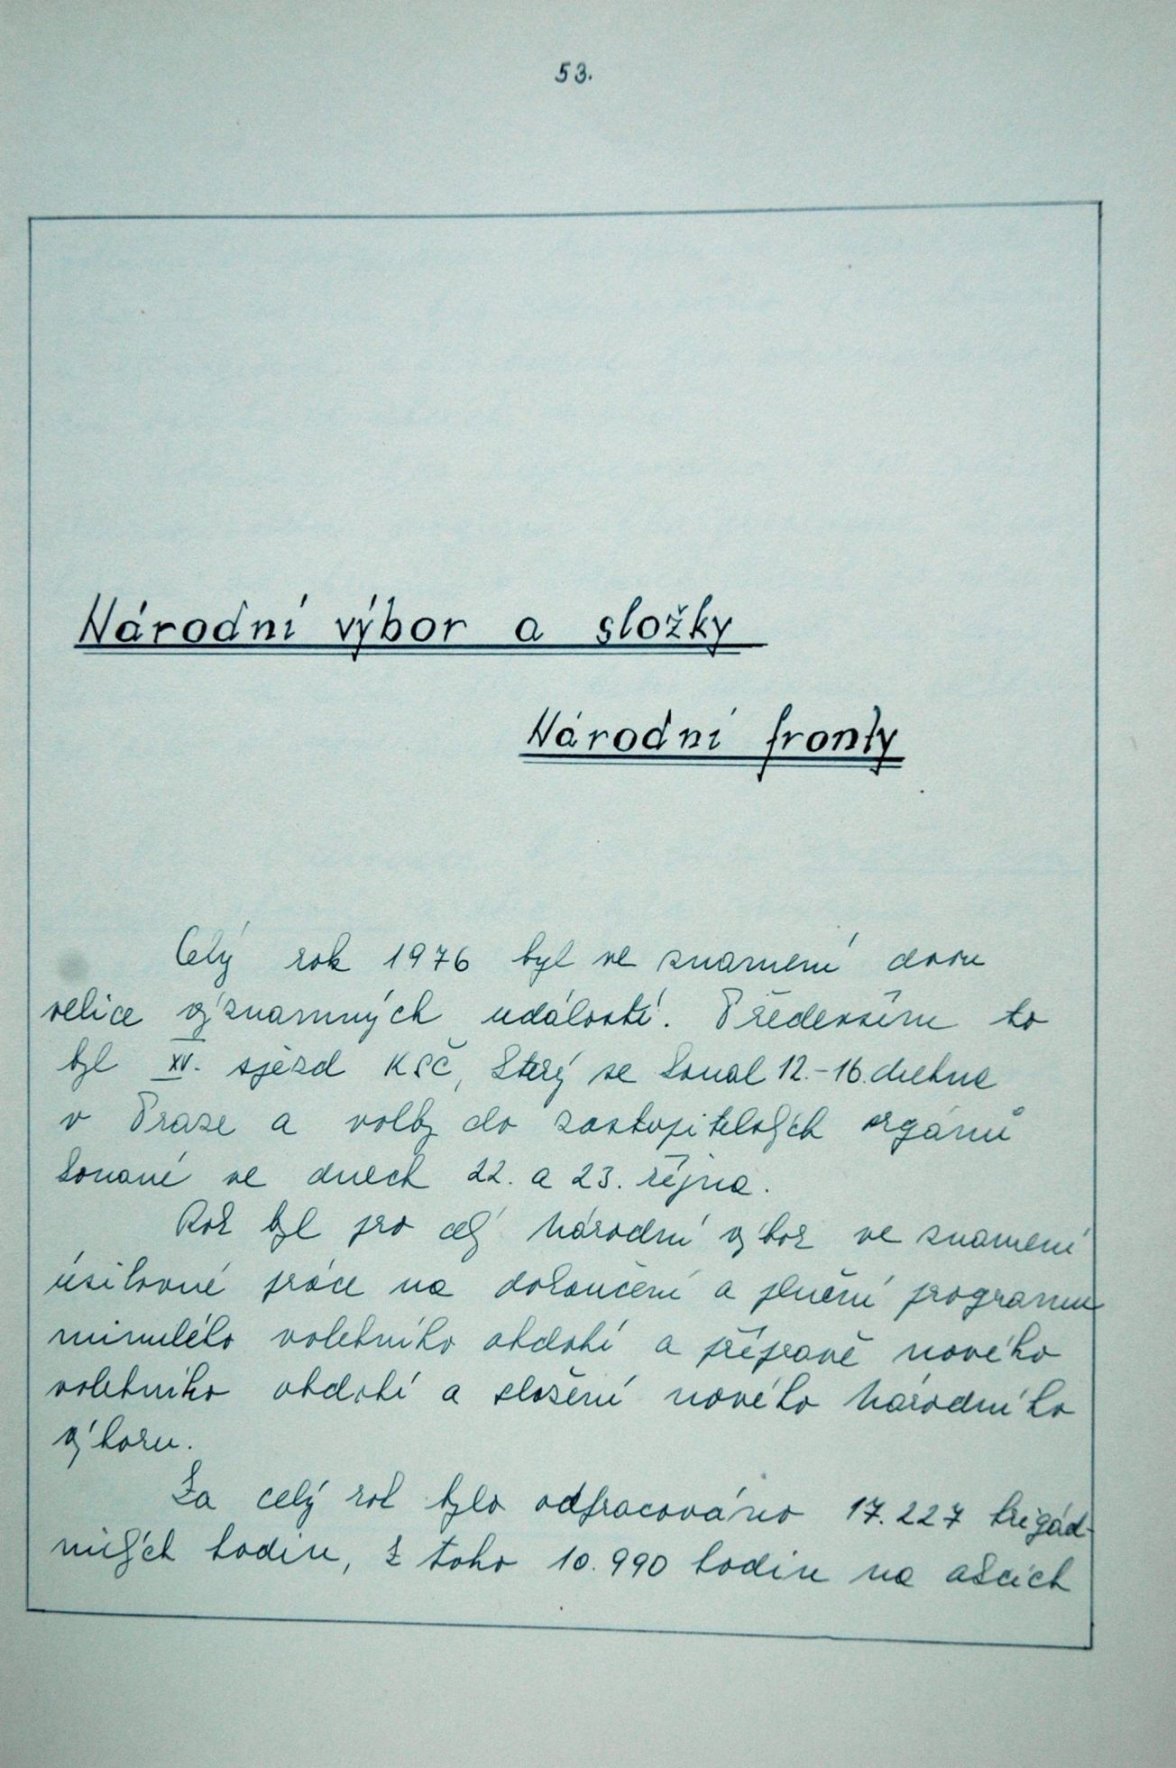 53.
Národní výbor a složky
Národní fronty
Celý rok 1976 byl ve znamení dvou
velice významných událostí. Především to
byl XV. sjezd KSČ, který se konal 12.-16. dubna
v Praze a volby do zastupitelských orgánů
konané ve dnech 22. a 23. října.
Rok byl pro celý národní výbor ve znamení
úsilovné práce na dokončení a plnění programu
minulého volebního období a přípravě nového
volebního období a složení nového národního
výboru.
Za celý rok bylo odpracováno 17.227 brigád-
nických hodin, z toho 10.990 hodin na akcích